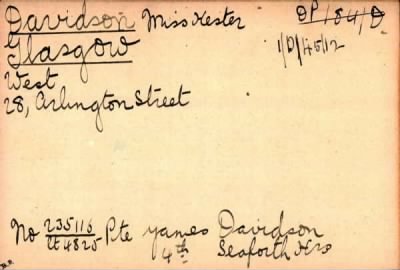 Davidson Miss Hester DP/84/D
Glasgow 1/D/4512
West
28, Arlington Street
No 235116 Pte James Davidson
4825 4th Seaforth Hrs
B.P.